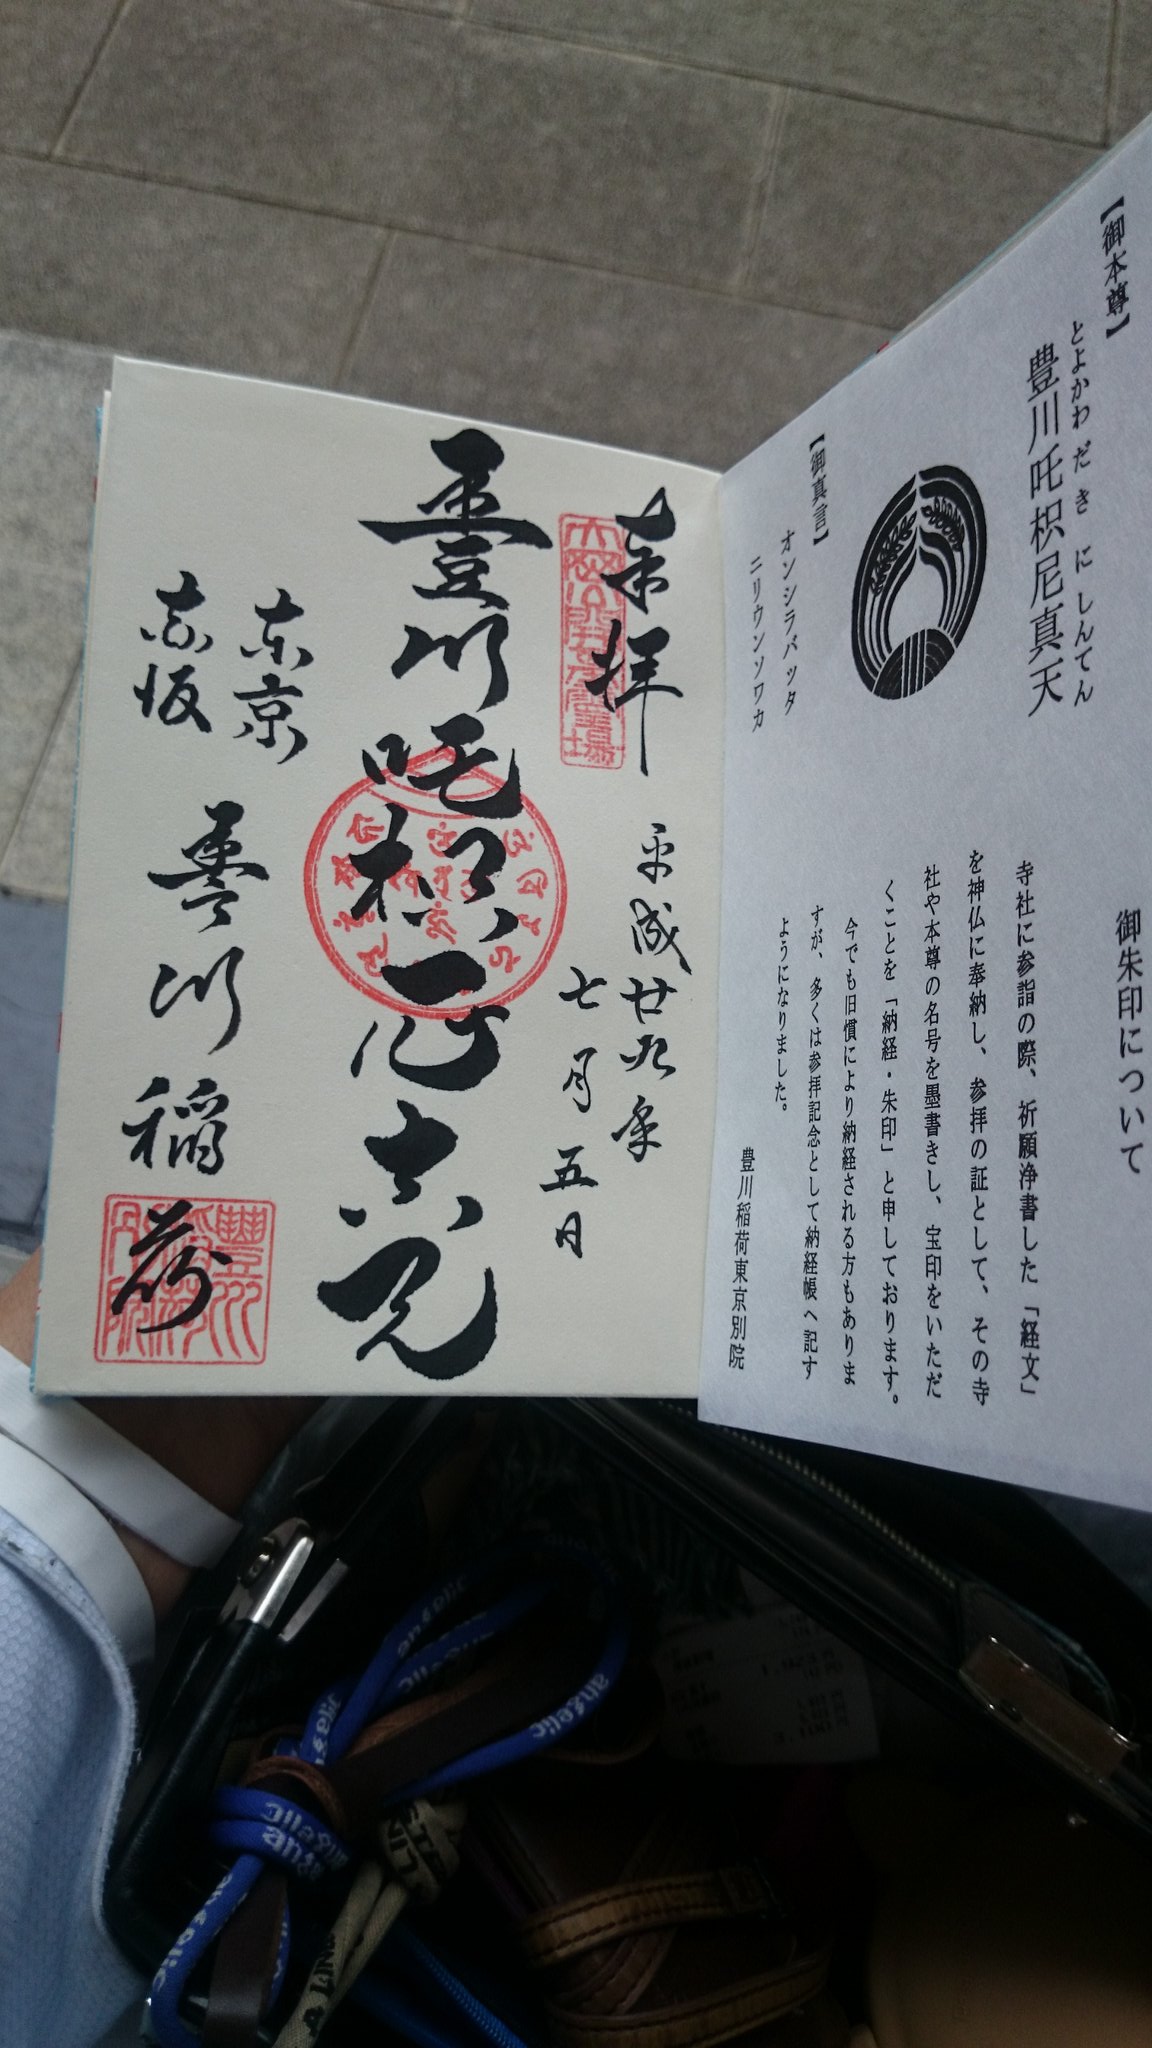 御朱印について
寺社に参詣の際、祈願浄書した「経文」
を神仏に奉納し、参拝の証として、その寺
社や本尊の名号を墨書きし、宝印をいただ
くことを「納経・朱印」と申しております。
今でも旧慣により納経される方もありま
すが、多くは参拝記念として納経帳へ記す
ようになりました。
豊川稲荷東京別院
【御本尊】
とよかわだきにしんてん
豊川吒枳尼真天
【御真言】
オンシラバッタ
ニリウンソワカ
奉拝
平成廿九年
七月五日
豊川吒枳尼真天
東京
赤坂
豊川稲荷
angelic
angelic
angelic
angelic